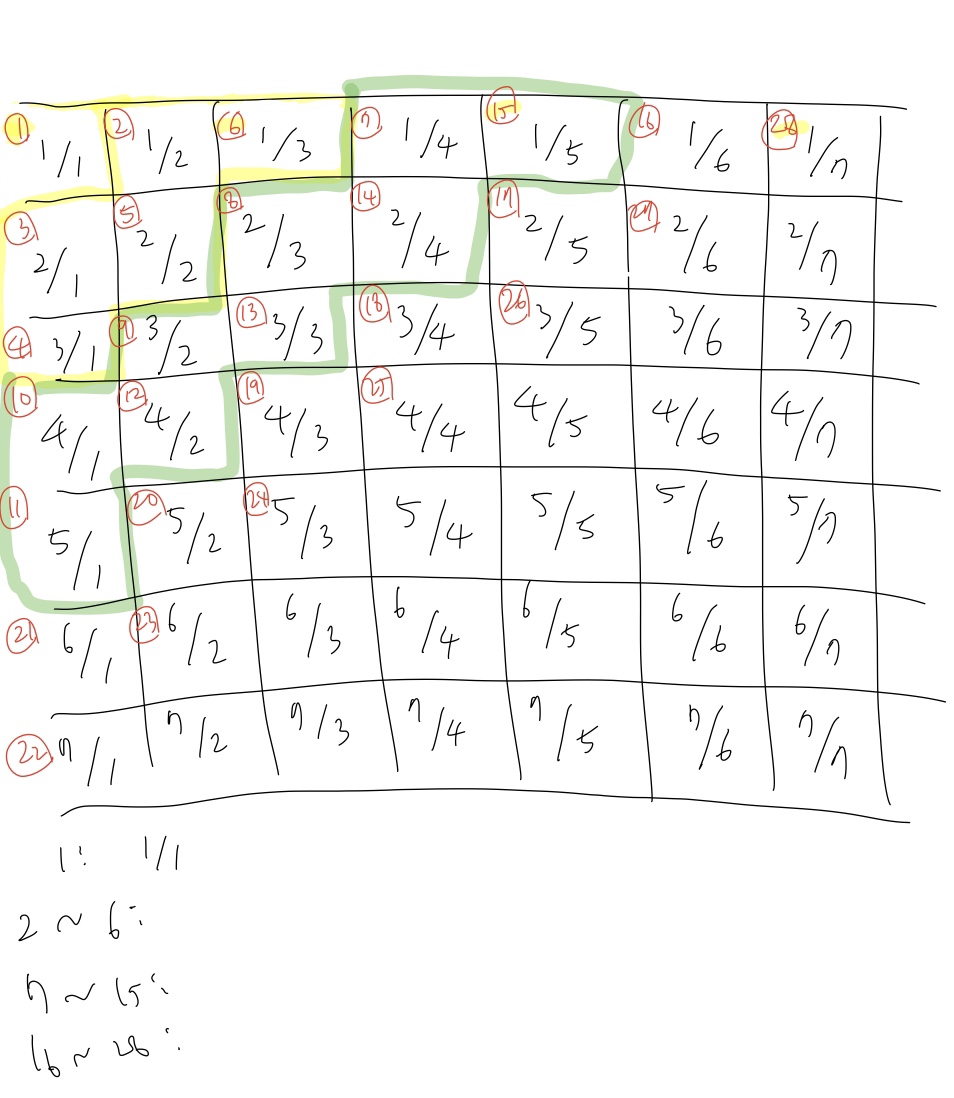 ① 1/1 ② 1/2 ⑥ 1/3 ⑦ 1/4 ⑮ 1/5 ⑯ 1/6 ㉘ 1/7
③ 2/1 ⑤ 2/2 ⑧ 2/3 ⑭ 2/4 ⑰ 2/5 ㉗ 2/6 2/7
④ 3/1 ⑨ 3/2 ⑬ 3/3 ⑱ 3/4 ㉖ 3/5 3/6 3/7
⑩ 4/1 ⑫ 4/2 ⑲ 4/3 ㉕ 4/4 4/5 4/6 4/7
⑪ 5/1 ⑳ 5/2 ㉔ 5/3 5/4 5/5 5/6 5/7
㉑ 6/1 ㉓ 6/2 6/3 6/4 6/5 6/6 6/7
㉒ 7/1 7/2 7/3 7/4 7/5 7/6 7/7
1: 1/1
2 ~ 6:
7 ~ 15:
16 ~ 28: